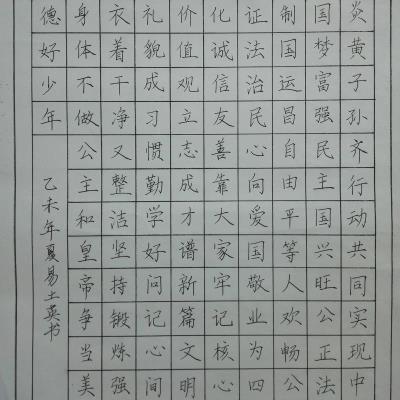 炎黄子孙齐行动共同实现中
国梦富强民主国兴旺公正法
制国运昌自由平等人欢畅公
证法治民心向爱国敬业为四
化诚信友善靠大家牢记核心
价值观立志成才谱新篇文明
礼貌成习惯勤学好问记心间
衣着干净又整洁坚持锻炼强
身体不做公主和皇帝争当美
德好少年
乙未年夏易土英书